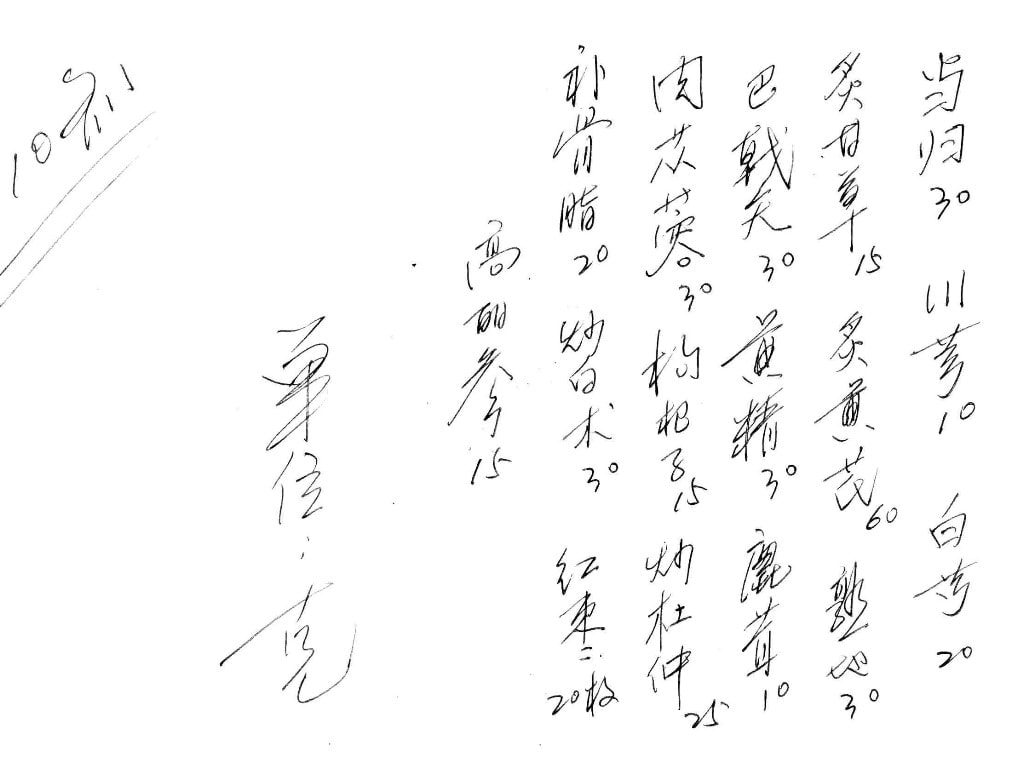 当归30 川芎10 白芍20
炙甘草15 炙黄芪60 熟地30
巴戟天30 黄精30 鹿茸10
肉苁蓉30 枸杞子15 炒杜仲25
补骨脂20 炒白术30 红枣20枚
高丽参15
单位:克
10剂